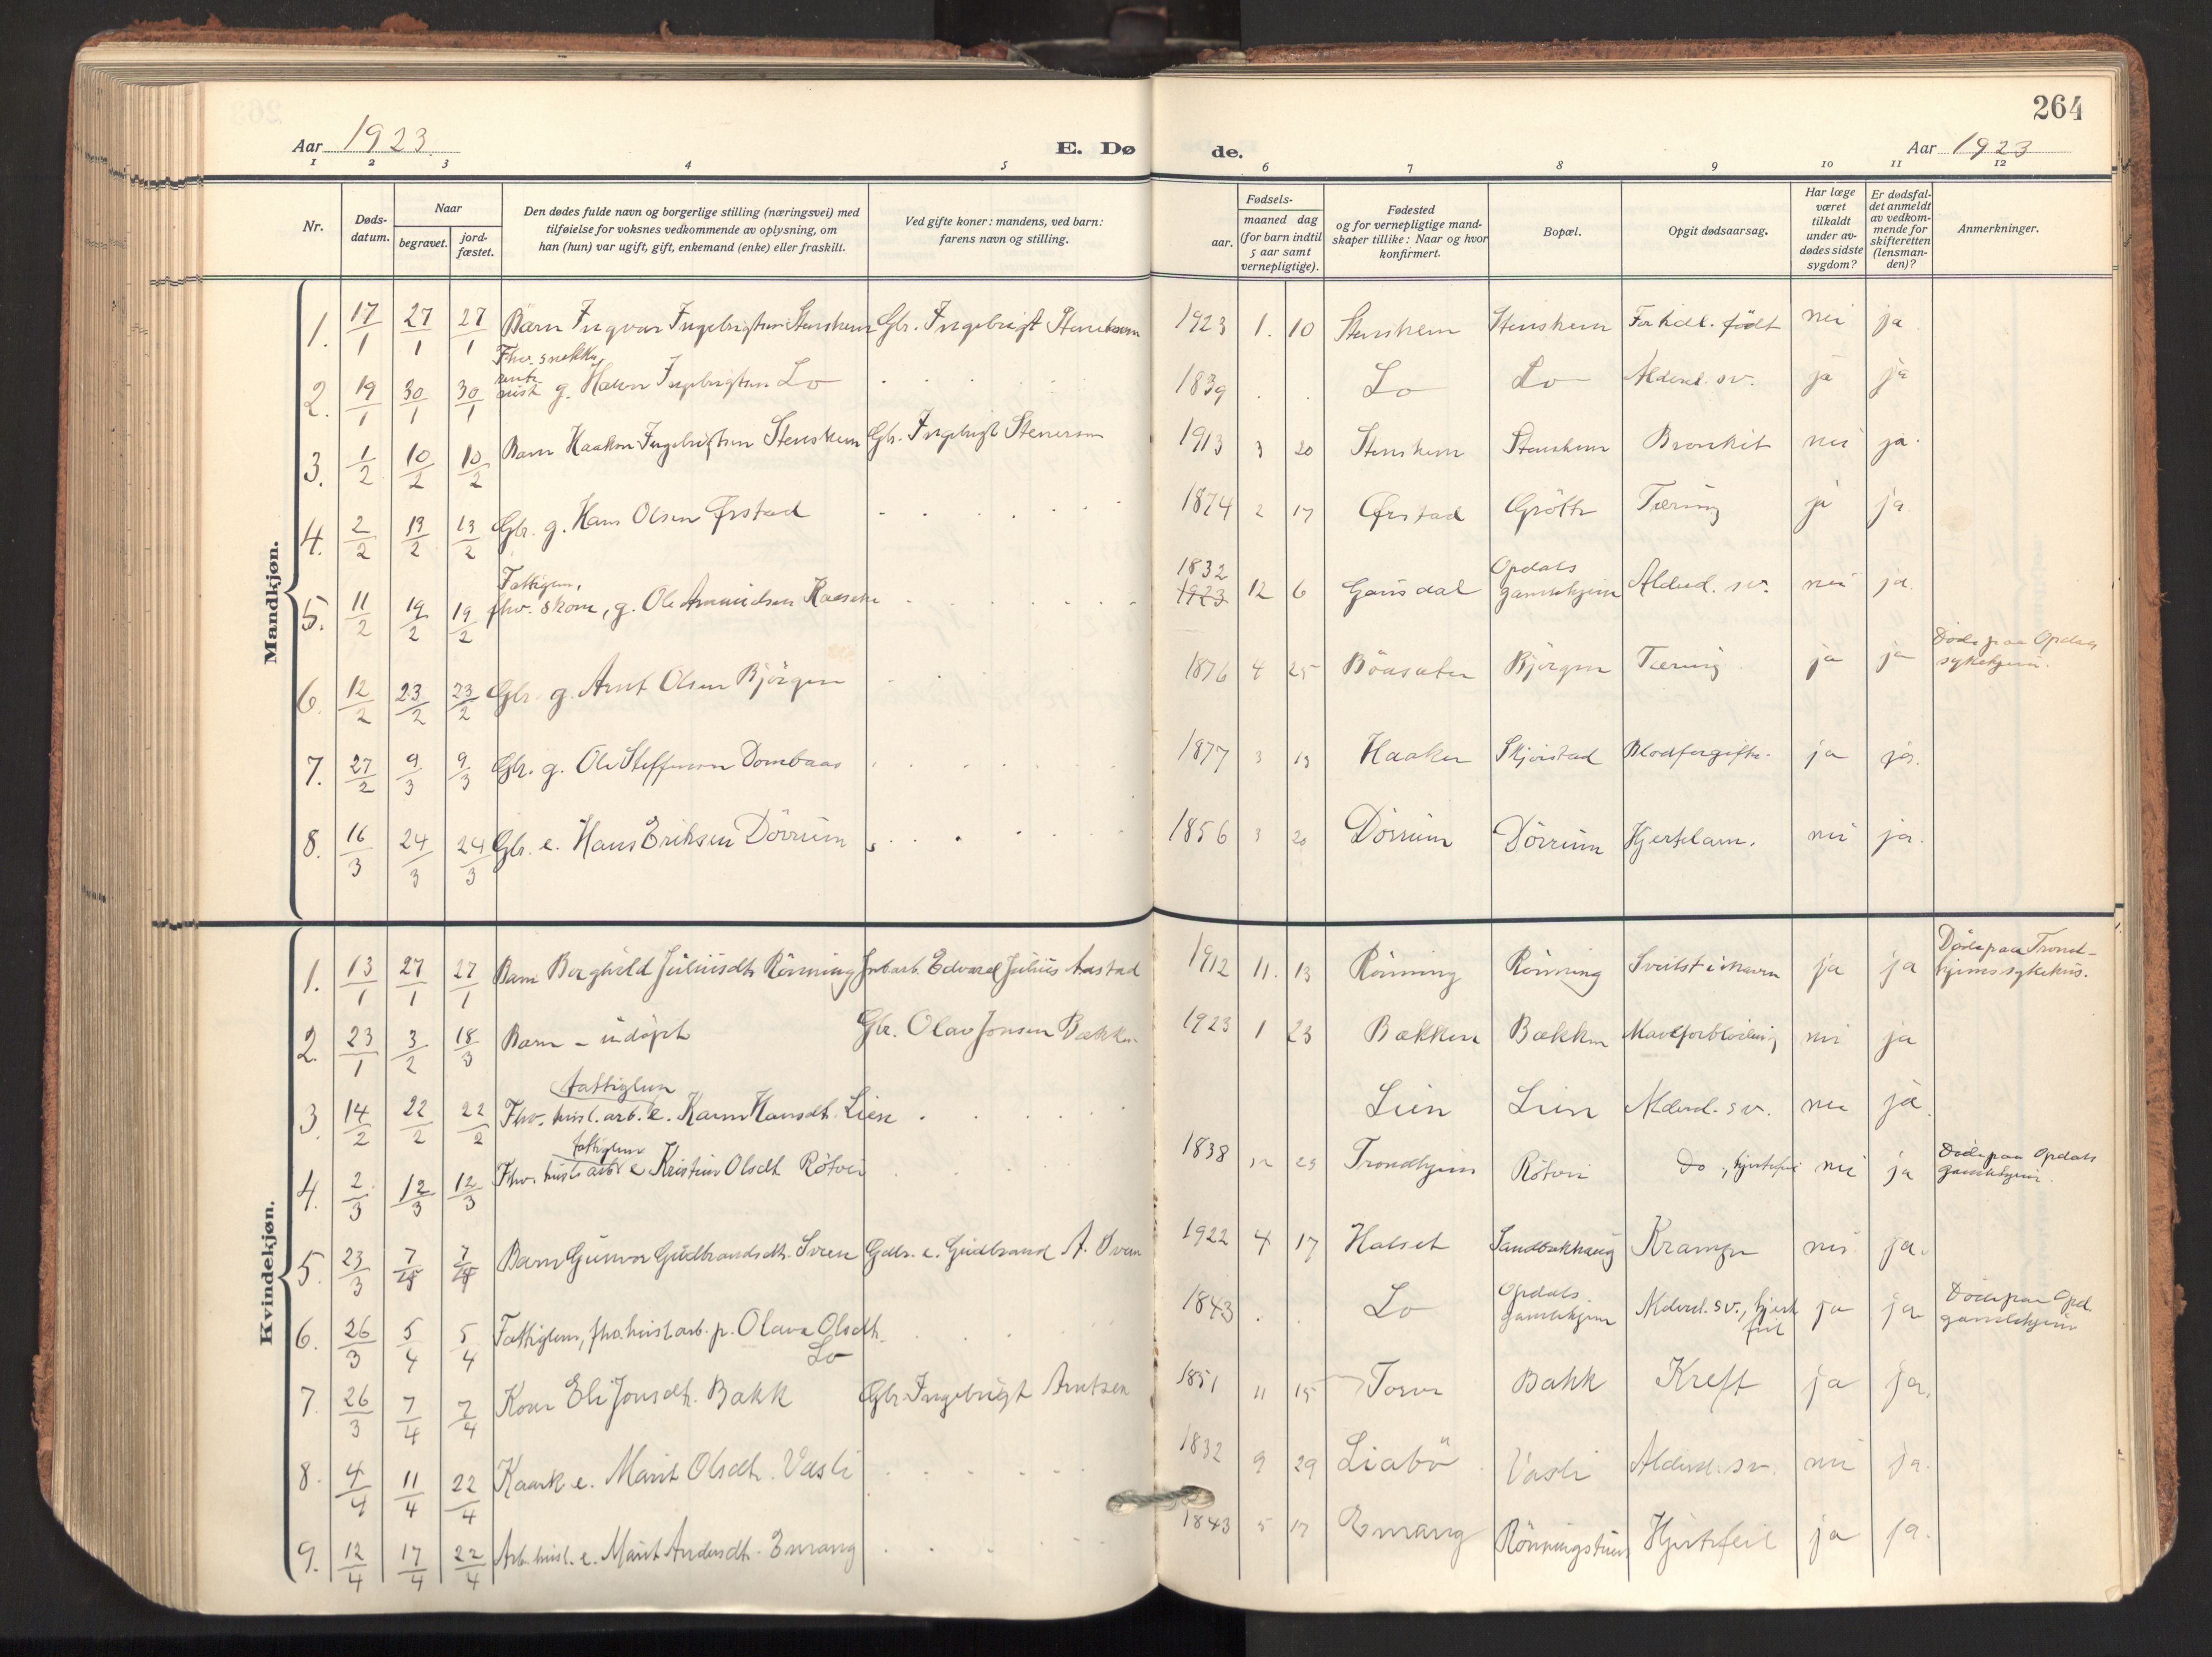 264
Aar 1923
E. Dø de.
Aar 1923
1 2 3 4 5 6 7 8 9 10 11 12
Nr.
Døds-
datum.
Naar
begravet.
jord-
fæstet.
Den dødes fulde navn og borgerlige stilling (næringsvei) med
tilføielse for voksnes vedkommende av oplysning, om
han (hun) var ugift, gift, enkemand (enke) eller fraskilt.
Ved gifte koner: mandens, ved barn:
farens navn og stilling.
Fødsels-
aar. maaned dag
(for barn indtil
5 aar samt
vernepligtige).
Fødested
og for vernepligtige mand-
skaper tillike: Naar og hvor
konfirmert.
Bopæl.
Opgit dødsaarsag.
Har læge
været
tilkaldt
under av-
dødes sidste
sygdom?
Er dødsfal-
det anmeldt
av vedkom-
mende for
skifteretten
(lensman-
den)?
Anmerkninger.
Mandkjøn.
1. 17/1 27/1 27/1 Barn Ingvar Ingebrigtsen Stenshem Gbr. Ingebrigt 1923 1. 10 Stenshem Stenshem født nei ja
Fhv. snekker
2. 19/1 30/1 30/1 g. Haken Ingebrigtsen Lo 1839 Lo Lo Alderd. sv. ja ja
3. 1/2 10/2 10/2 Barn Haakon Ingebrigtsen Stenshem Gbr. Ingebrigt Stenersen 1913 3 20 Stenshem Stenshem Bronkit nei ja.
4. 2/2 13/2 13/2 Gbr. g. Hans Olsen Ørstad 1874 2 17 Ørstad Grötte Tæring ja ja
Fattiglem,
5. 11/2 19/2 19/2 fhv. skom, g. Ole Amundsen 1832 1923 12 6 Gausdal Opdals gamlehjem Alderd. sv. nei ja.
6. 12/2 23/2 23/2 Gbr. g. Arnt Olsen Björgen 1876 4 25 Böasæter Björgen Tæring ja ja Döde paa Opdals
sykehjem.
7. 27/2 9/3 9/3 Gbr. g. Ole Steffensen Dombaas 1877 3 19 Haaker Skjørstad Blodforgiftn. ja ja.
8. 16/3 24/3 24/3 Gbr. e. Hans Eriksen Dörrum 1856 3 20 Dörrum Dörrum Hjertelam. nei ja.
Kvindekjøn.
1. 13/1 27/1 27/1 Barn Borghild Juliusdt. Rönning Edvard Julius Aastad 1912 11. 13 Rönning Rönning ja ja Döde paa Trond-
hjems sykehus.
2. 23/1 3/2 18/3 Barn – udöpt Gbr. Olav Jonsen Bækken 1923 1 23 Bækken Bækken Maveforblödning nei ja
fattiglem
3. 14/2 22/2 22/2 Fhv. husl. arb. e. Karen Hansdt. Lien Lien Lien Alderd. sv. nei ja.
fattiglem
4. 2/3 12/3 12/3 Fhv. husl. arb. e Kristine Olsdt. Røtvei 1838 12 23 Trondhjem Røtvei Do, hjertefeil nei ja Döde paa Opdals
gamlehjem.
5. 23/3 7/4 7/4 Barn Gunvor Gudbrandsdt. Svien Gdbr. e. Gudbrand A. Sven 1922 4 17 Halset Sandbækhaug Krampe nei ja.
6. 26/3 5/4 5/4 Fattiglem, fhv. huslarb. p. Olava Olsdt.
Lo 1843 Lo Opdals gamlehjem Alderd. sv., hjerte
feil ja ja Döde paa Opd.
gamlehjem
7. 26/3 7/4 7/4 Kone Eli Jonsdt. Bakk Gbr. Ingebrigt Arntsen 1851 11 15 Torve Bakk Kreft ja ja.
8. 4/4 11/4 22/4 Kaark e. Marit Olsdt. Vasli 1832 9 29 Liabö Vasli Alderd. sv. nei ja.
9. 12/4 17/4 22/4 Arb. husl. e. Marit Andersdt. Emang 1843 5 17 Emang Rönningstuen Hjertefeil ja ja.